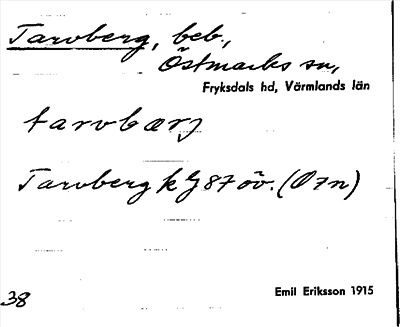 Tarvberg, beb.,
Östmarks sn,
Fryksdals hd, Värmlands län
tarvbærj
Tarvberg k GJ 87 öv. (Ö 7n)
Emil Eriksson 1915
38